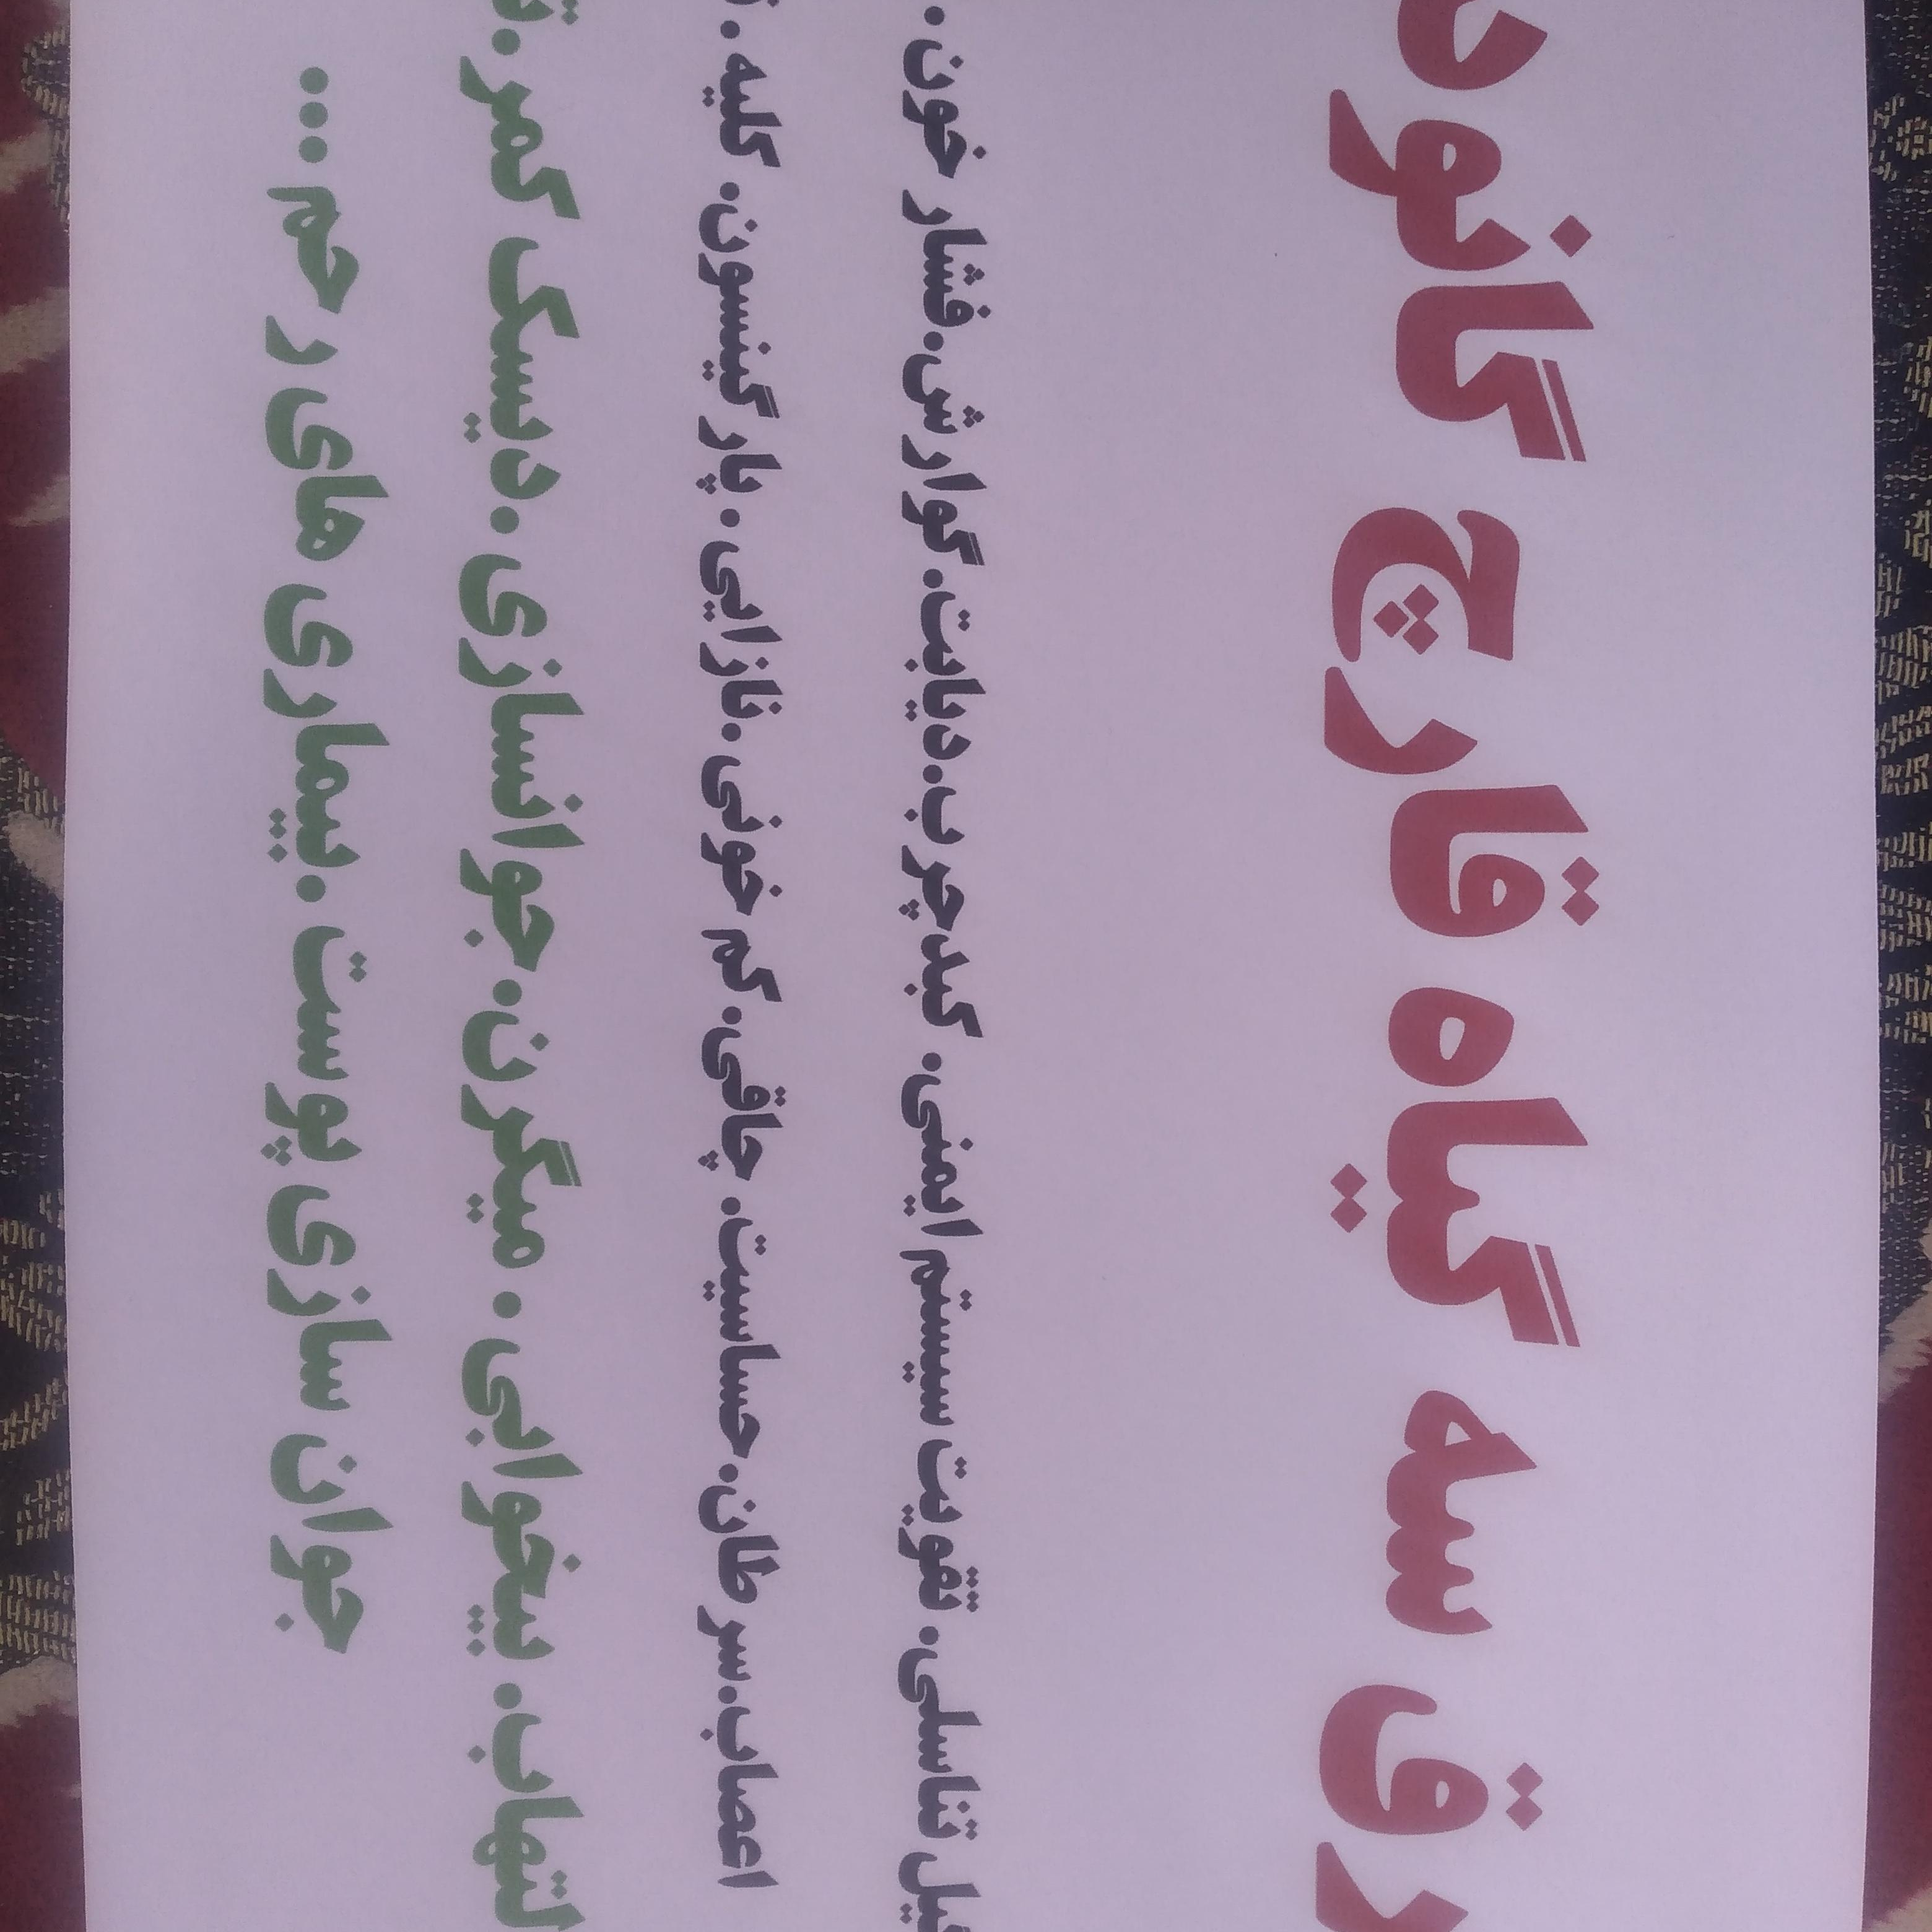 رق سه گیاه قارچ گانود
تناسلی. تقویت سیستم ایمنی. کبدچرب.دیابت. گوارش.فشار خون.
اعصاب.سرطان.حساسیت. چاقی. کم خونی.نازایی. پارگینسون. کلیه.
لتهاب. بیخوابی. میگرن.جوانسازی.دیسک کمر.
جوان سازی پوست.بیماری های رحم...